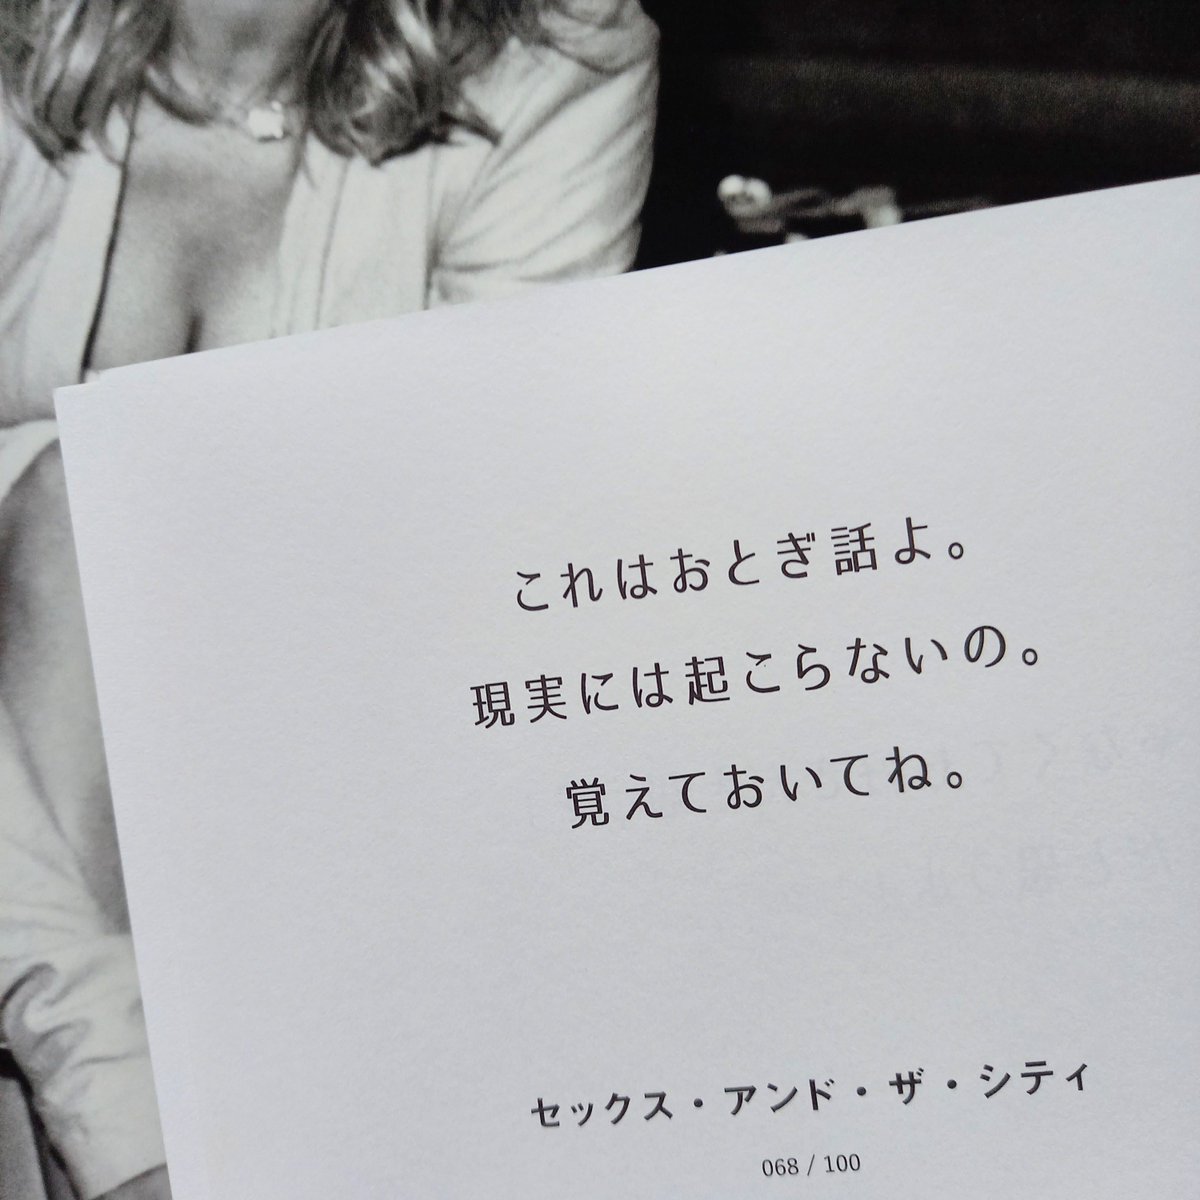 これはおとぎ話よ。
現実には起こらないの。
覚えておいてね。
セックス・アンド・ザ・シティ
068 / 100